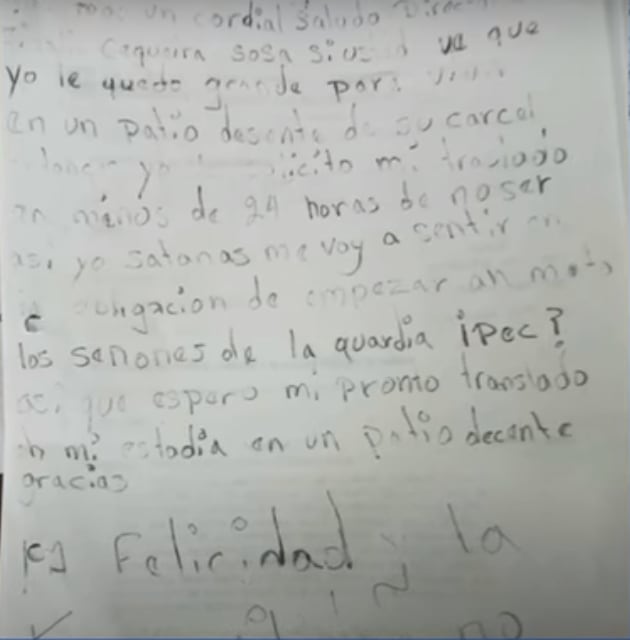 un cordial Saludo
Cequeira sosa si ve que
yo le quedo grande para
en un patio desente de su carcel
yo mi traslado
en menos de 24 horas de no ser
asi yo satanas me voy a sentir en
obligacion de empezar ah
los senones de la guardia ipec?
asi que espero mi promo translado
mi estadia en un patio decente
gracias
Felicidad y la